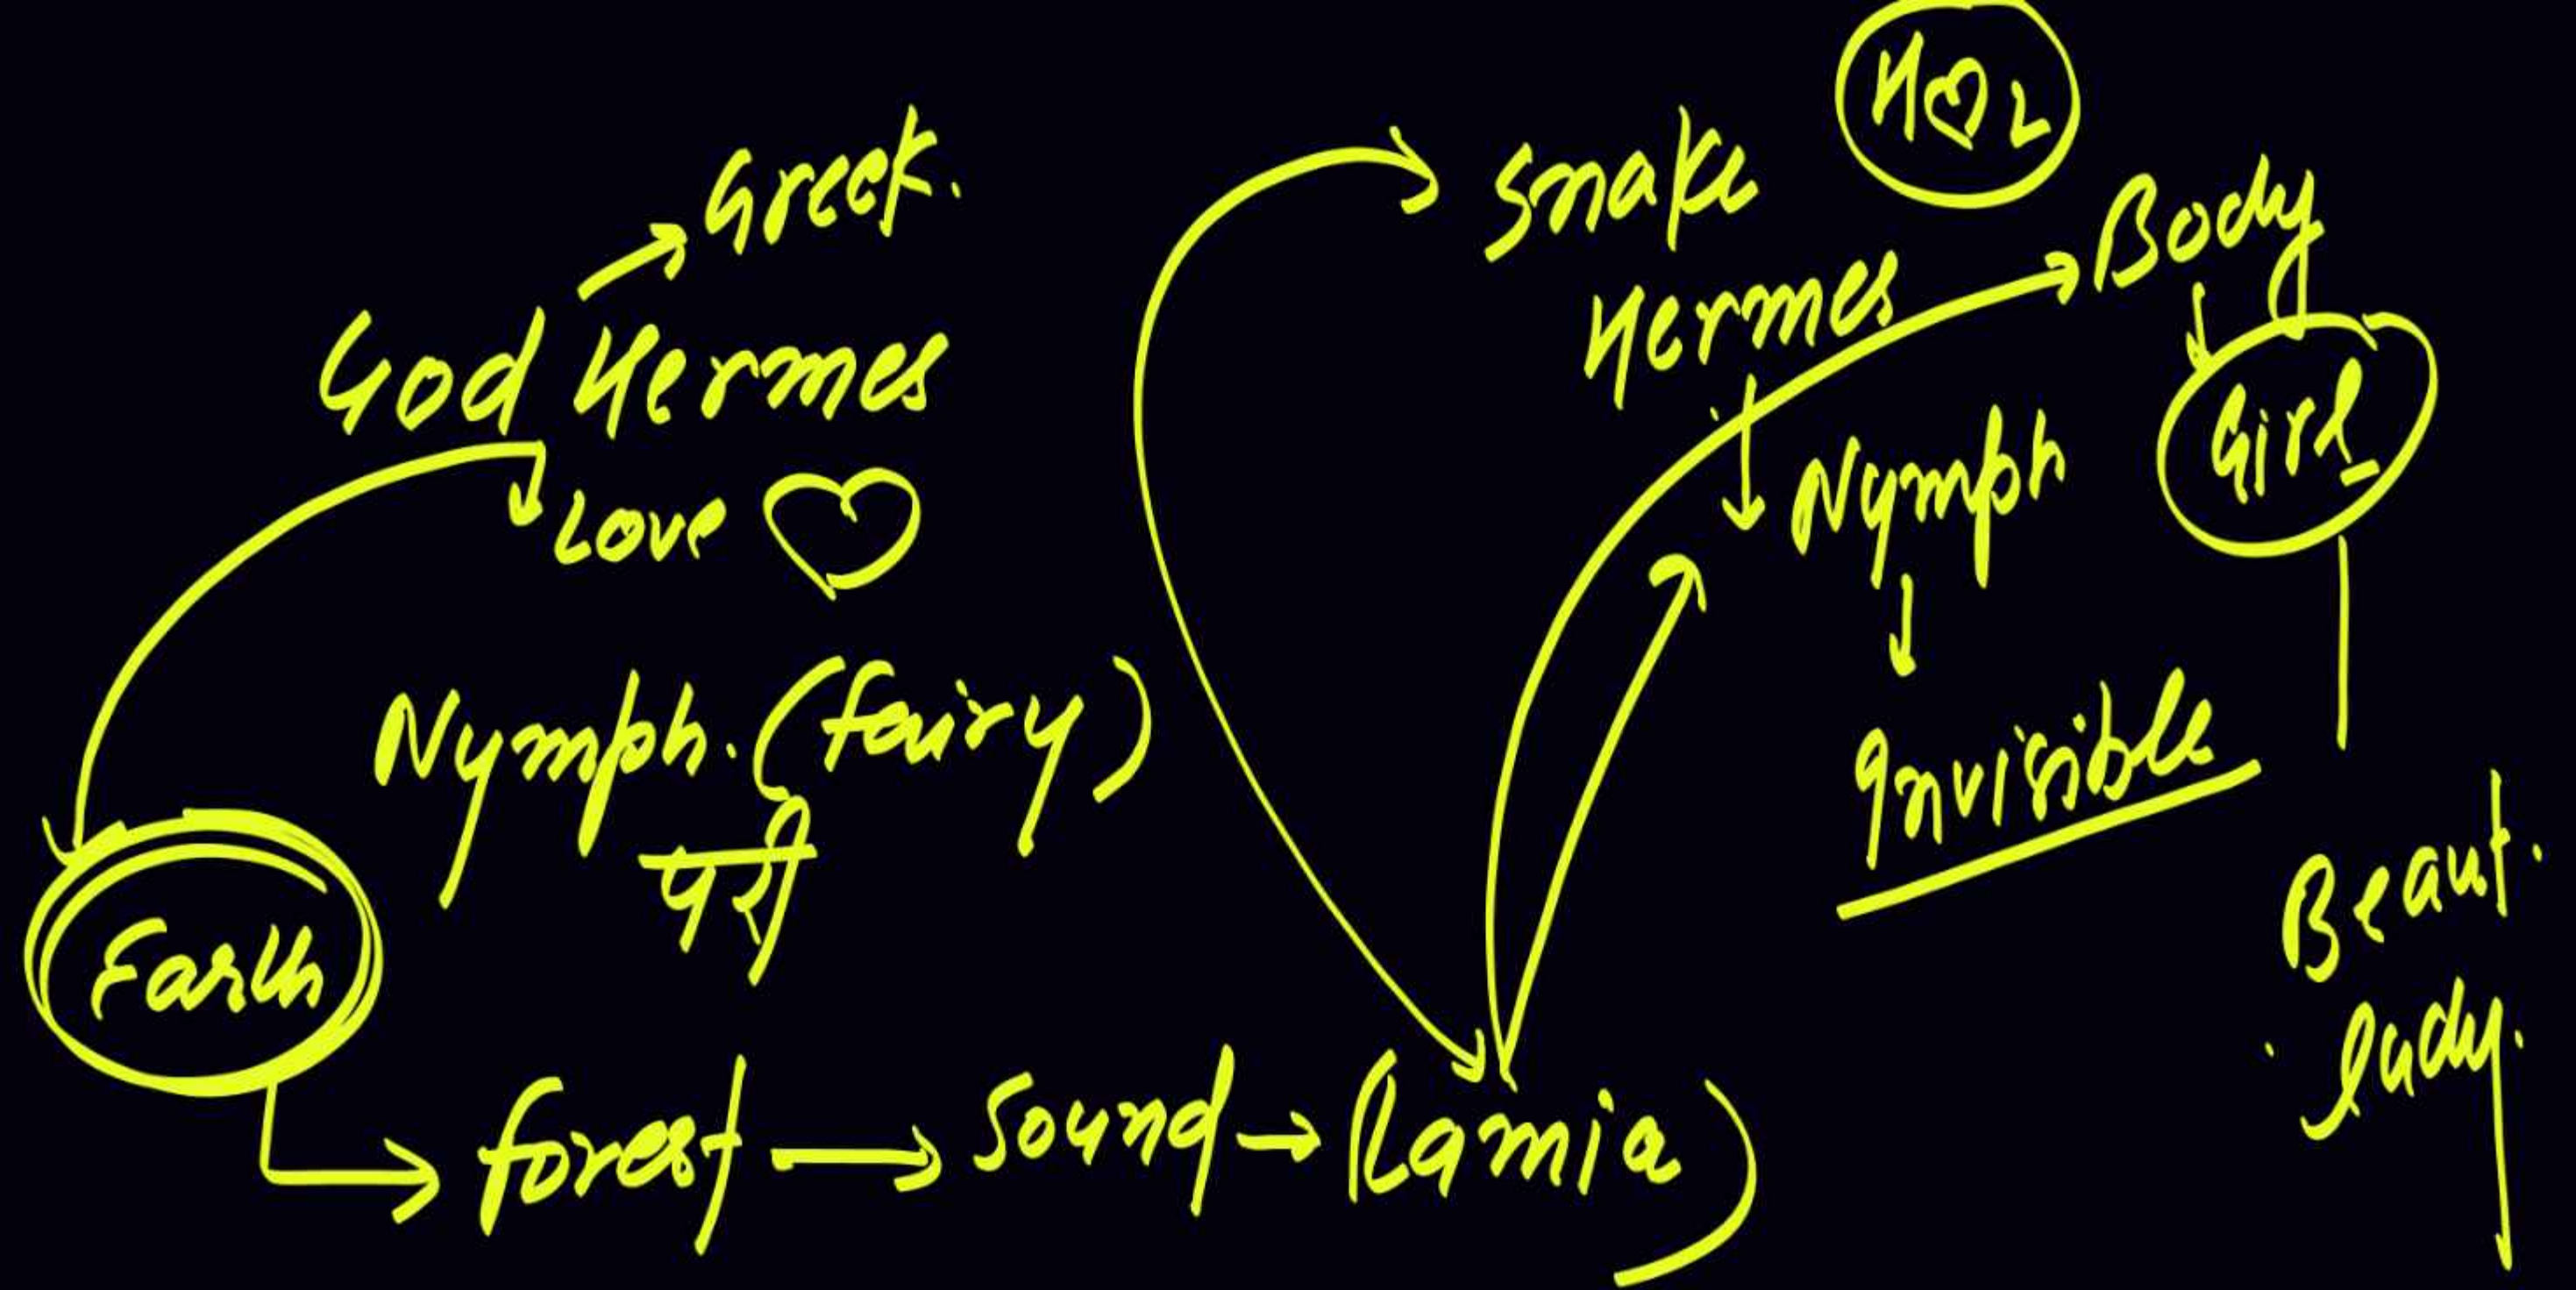 Greek.
God Hermes
Love
Nymph. (fairy)
परी
Earth
forest → Sound → (Lamia)
H♡L
Snake
Body
Hermes
Girl
Nymph
Invisible
Beaut.
lady.